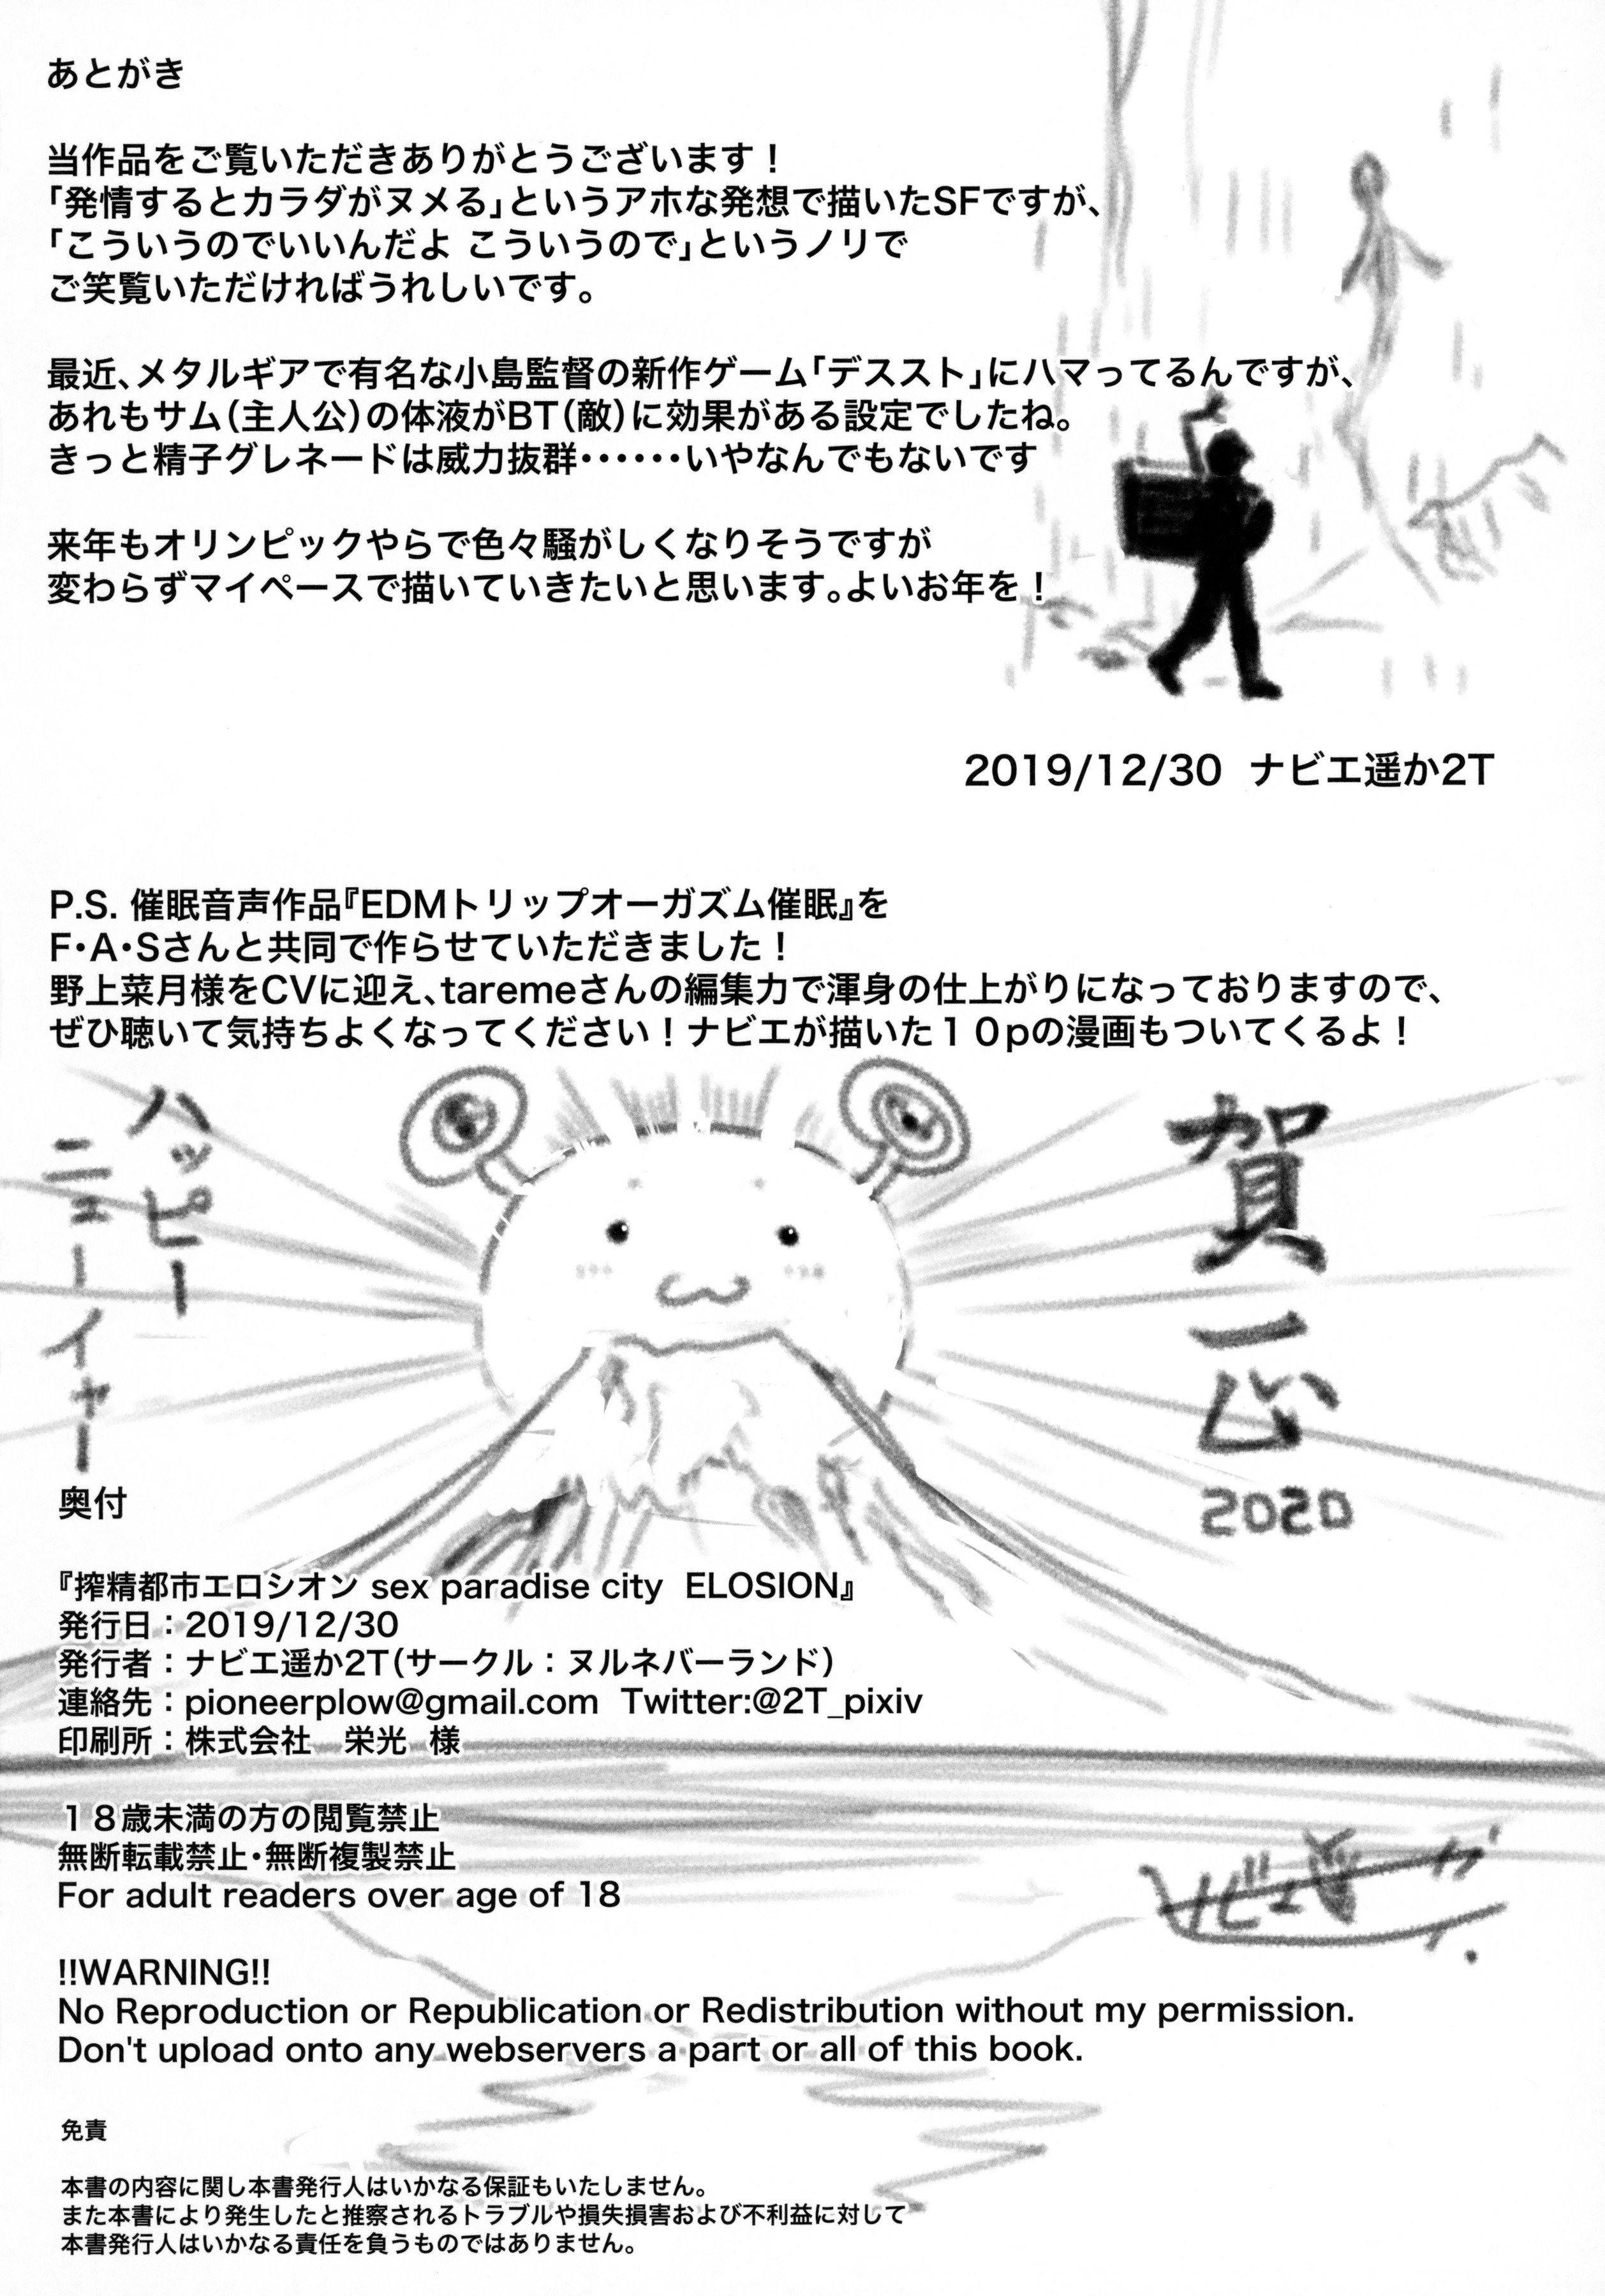 あとがき
当作品をご覧いただきありがとうございます！
｢発情するとカラダがヌメる｣というアホな発想で描いたSFですが、
｢こういうのでいいんだよ こういうので｣というノリで
ご笑覧いただければうれしいです。
最近、メタルギアで有名な小島監督の新作ゲーム｢デススト｣にハマってるんですが、
あれもサム（主人公）の体液がBT（敵）に効果がある設定でしたね。
きっと精子グレネードは威力抜群･･････いやなんでもないです
来年もオリンピックやらで色々騒がしくなりそうですが
変わらずマイペースで描いていきたいと思います。よいお年を！
2019/12/30 ナビエ遥か2T
P.S. 催眠音声作品『EDMトリップオーガズム催眠』を
F･A･Sさんと共同で作らせていただきました！
野上菜月様をCVに迎え、taremeさんの編集力で渾身の仕上がりになっておりますので、
ぜひ聴いて気持ちよくなってください！ナビエが描いた１０pの漫画もついてくるよ！
賀正
2020
ハッピー
ニューイヤー
奥付
『搾精都市エロシオン sex paradise city ELOSION』
発行日：2019/12/30
発行者：ナビエ遥か2T（サークル：ヌルネバーランド）
連絡先：pioneerplow@gmail.com Twitter:@2T_pixiv
印刷所：株式会社　栄光 様
１８歳未満の方の閲覧禁止
無断転載禁止･無断複製禁止
For adult readers over age of 18
!!WARNING!!
No Reproduction or Republication or Redistribution without my permission.
Don't upload onto any webservers a part or all of this book.
免責
本書の内容に関し本書発行人はいかなる保証もいたしません。
また本書により発生したと推察されるトラブルや損失損害および不利益に対して
本書発行人はいかなる責任を負うものではありません。